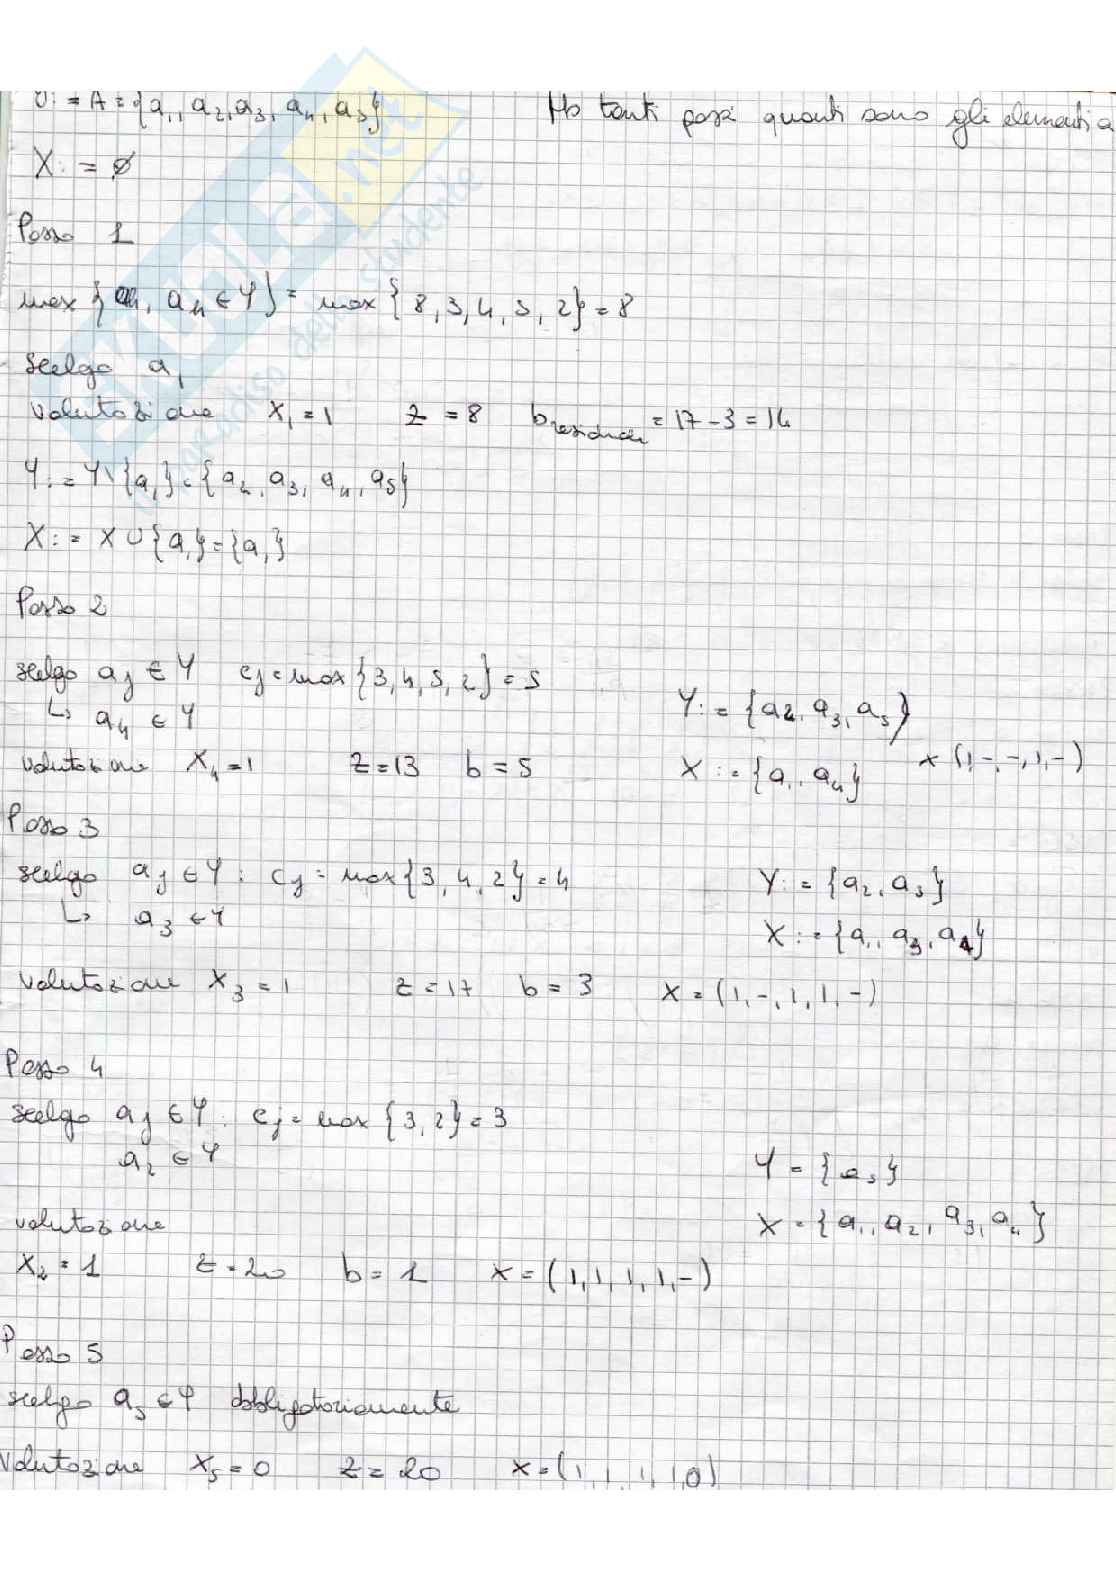 Y: = A = {a₁, a₂, a₃, a₄, a₅}   Ho tanti passi quanti sono gli elementi a
X: = ∅
Passo 1
max { , a₄ ∈ Y} = max {8, 3, 4, 5, 2} = 8
Scelgo a₁
valutazione   x₁ = 1   z = 8   b residuo = 17 - 3 = 14
Y: = Y \ {a₁} = {a₂, a₃, a₄, a₅}
X: = X ∪ {a₁} = {a₁}
Passo 2
scelgo aⱼ ∈ Y   cⱼ = max {3, 4, 5, 2} = 5
↳ a₄ ∈ Y   Y: = {a₂, a₃, a₅}
valutazione   x₄ = 1   z = 13   b = 5   X: = {a₁, a₄}   x (1, -, -, 1, -)
Passo 3
scelgo aⱼ ∈ Y : cⱼ = max {3, 4, 2} = 4   Y: = {a₂, a₅}
↳ a₃ ∈ Y   X: = {a₁, a₃, a₄}
valutazione   x₃ = 1   z = 17   b = 3   x = (1, -, 1, 1, -)
Passo 4
scelgo aⱼ ∈ Y : cⱼ = max {3, 2} = 3
a₂ ∈ Y   Y = {a₅}
valutazione   X = {a₁, a₂, a₃, a₄}
x₂ = 1   z = 20   b = 1   x = (1, 1, 1, 1, -)
Passo 5
scelgo a₅ ∈ Y obbligatoriamente
valutazione   x₅ = 0   z = 20   x = (1, 1, 1, 1, 0)